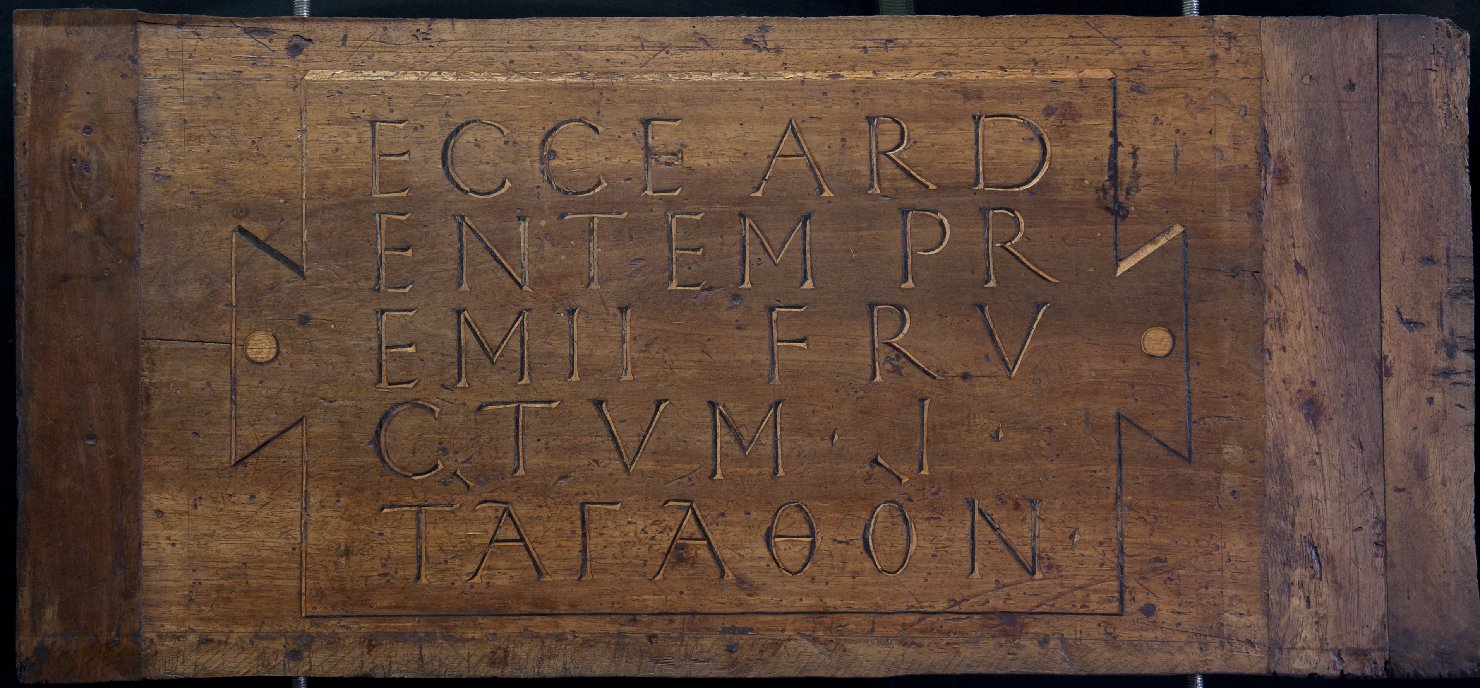 ECCE ARD
ENTEM PR
EMII FRV
CTVM · J ·
ΤΑΓΑΘΟΝ